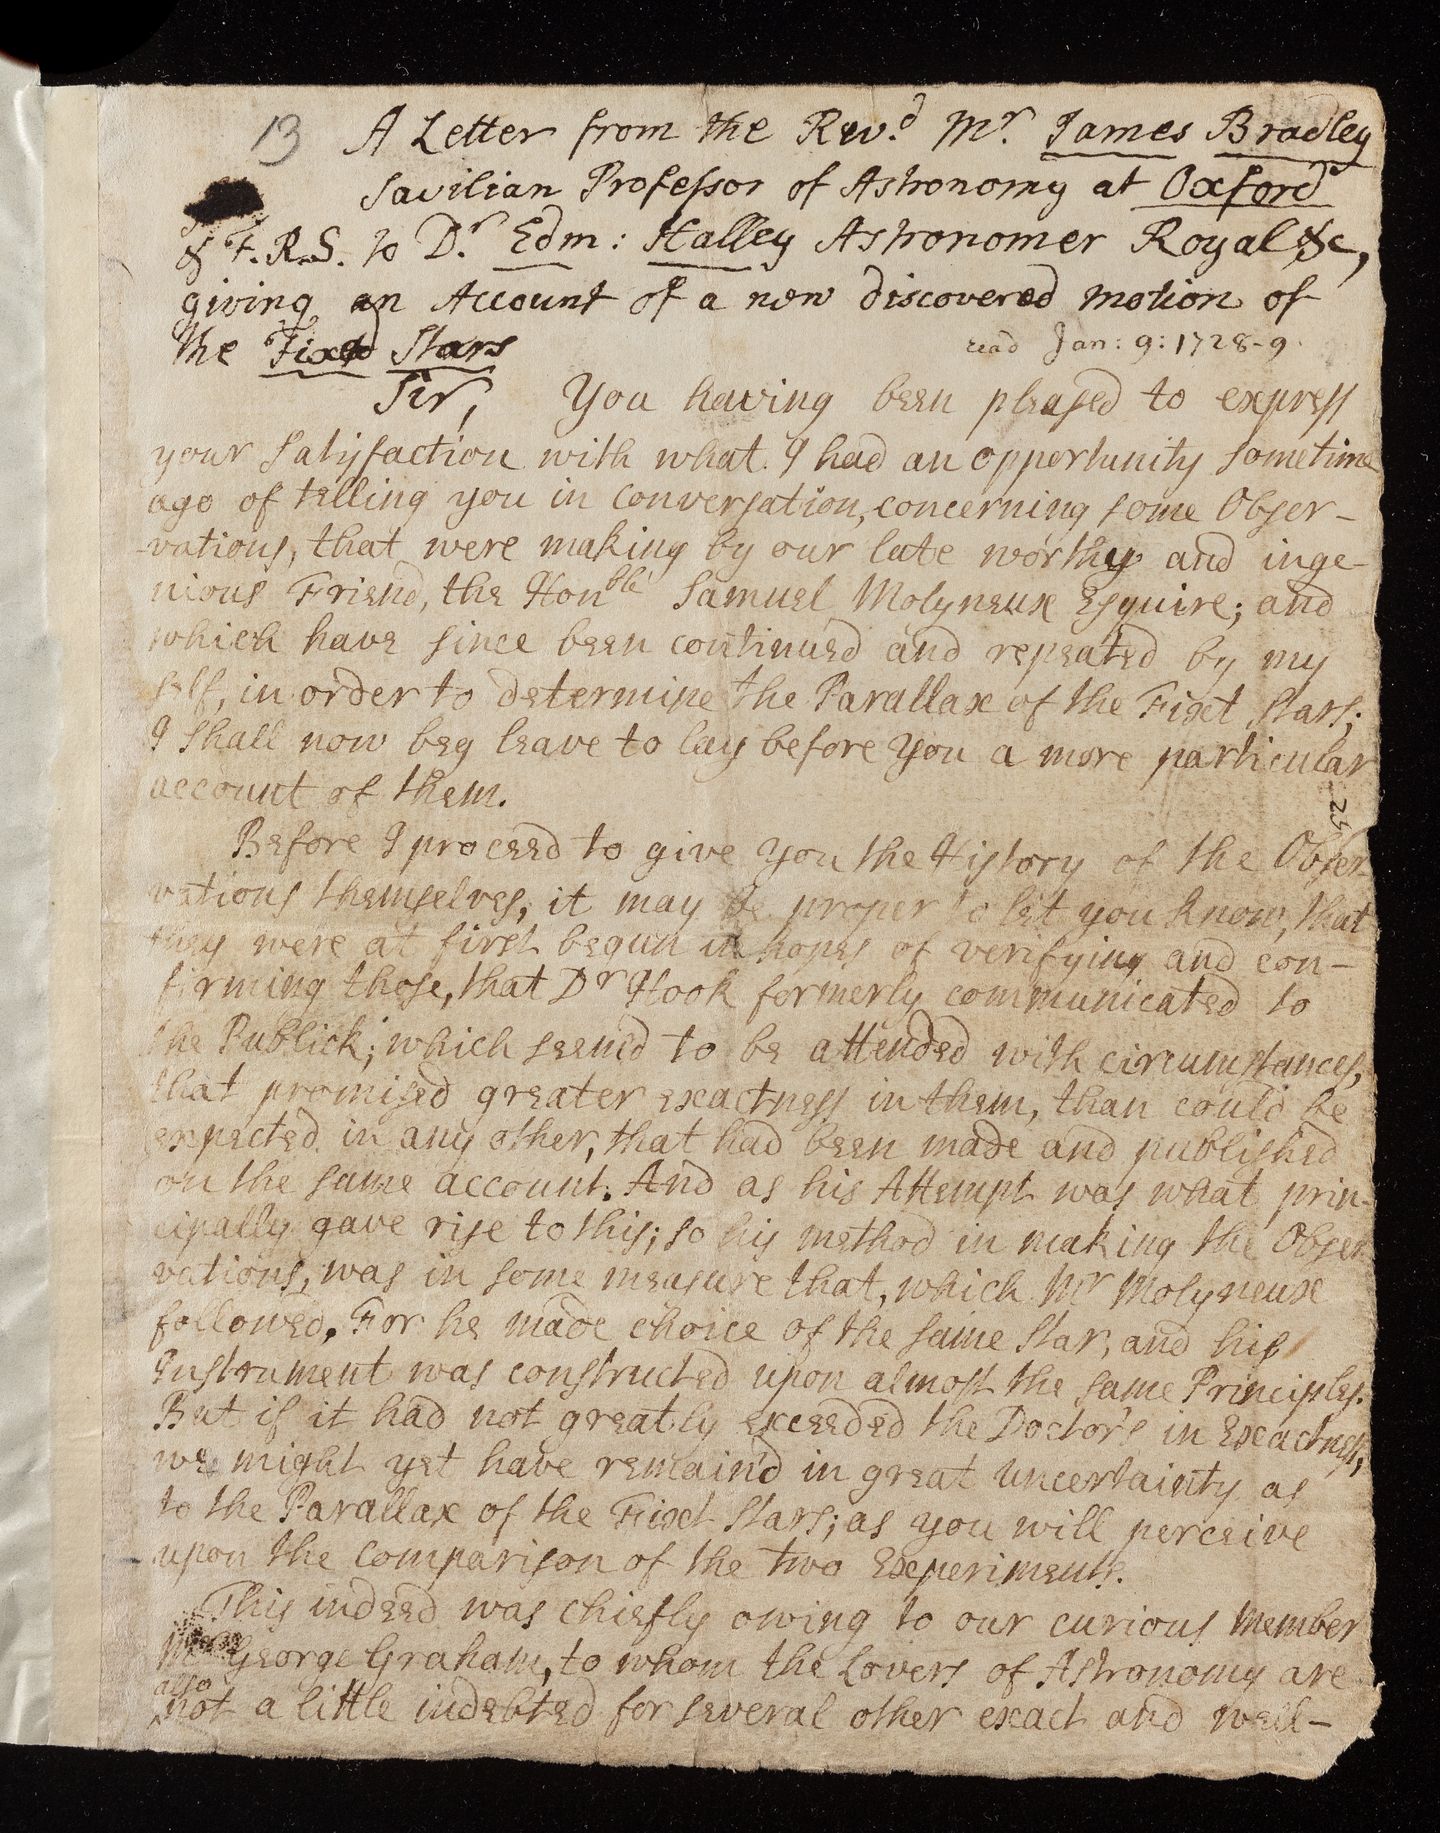 13 A Letter from the Revd. Mr James Bradley
Savilian Professor of Astronomy at Oxford
& F.R.S. to Dr. Edm: Halley Astronomer Royal &c,
giving an Account of a new discovered motion of
the Fixed Stars
read Jan: 9: 1728-9.
Sir, You having been pleased to express
your Satisfaction with what I had an opportunity sometime
ago of telling you in conversation, concerning some Obser-
-vations, that were making by our late worthy and inge-
nious Friend, the Honble Samuel Molyneux Esquire; and
which have since been continued and repeated by my
self, in order to determine the Parallax of the Fixt Stars;
I shall now beg leave to lay before you a more particular
account of them.
25
Before I proceed to give you the History of the Obser-
vations themselves, it may be proper to let you know, that
they were at first begun in hopes of verifying and con-
firming those, that Dr Hook formerly communicated to
the Publick; which seemed to be attended with circumstances,
that promised greater exactness in them, than could be
expected in any other, that had been made and published
on the same account. And as his Attempt was what prin-
cipally gave rise to this; so his method in making the Obser-
vations, was in some measure that, which Mr Molyneux
followed. For he made choice of the same Star, and his
Instrument was constructed upon almost the same Principles.
But if it had not greatly exceeded the Doctor's in Exactness,
we might yet have remain'd in great uncertainty as
to the Parallax of the Fixt Stars; as you will perceive
upon the comparison of the two Experiments.
This indeed was chiefly owing to our curious Member
Mr George Graham, to whom the Lovers of Astronomy are
also
not a little indebted for several other exact and well-